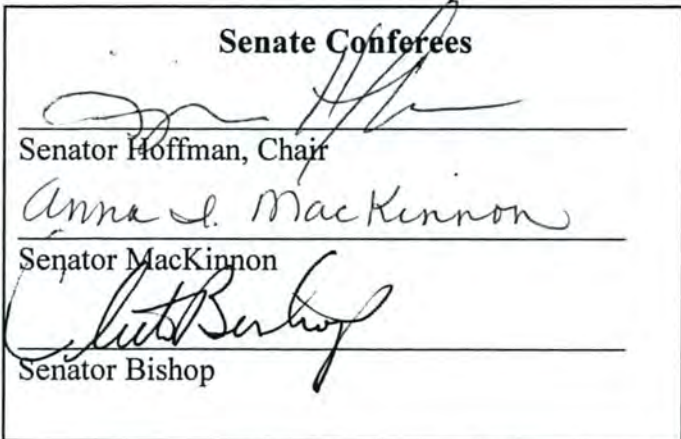 Senate Conferees
Senator Hoffman, Chair
Anna I. MacKinnon
Senator MacKinnon
Click Bishop
Senator Bishop